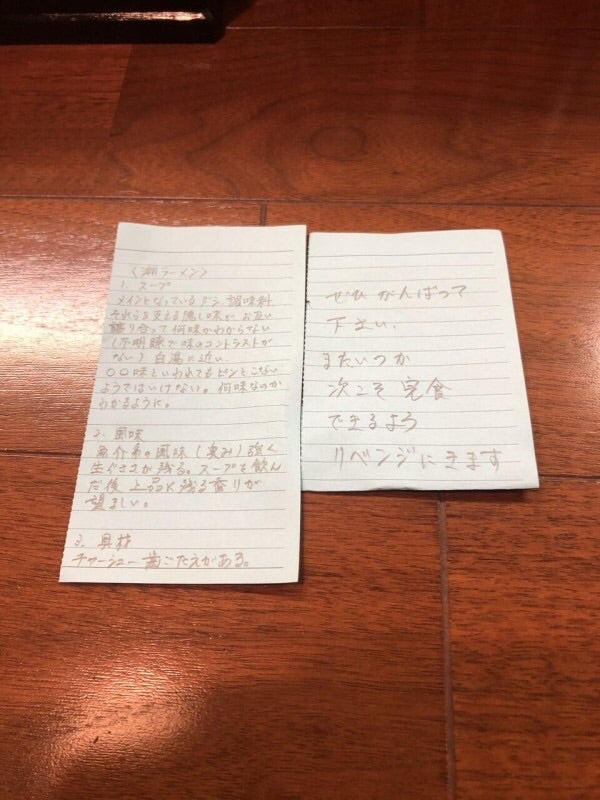 〈潮ラーメン〉
1. スープ
メインとなっているダシ 調味料
それらを支える隠し味が お互い
譲り合って 何味かわからない
(不明瞭で味のコントラストが
ない) 白湯に近い。
〇〇味といわれてもピンとこない
ようではいけない。何味なのか
わかるように。
2. 風味
魚介系の風味(臭み)強く
生ぐささが残る。スープを飲ん
だ後 上品に残る香りが
望ましい。
3. 具材
チャーシュー 歯ごたえがある。
ぜひ がんばって
下さい、
またいつか
次こそ 完食
できるよう
リベンジにきます